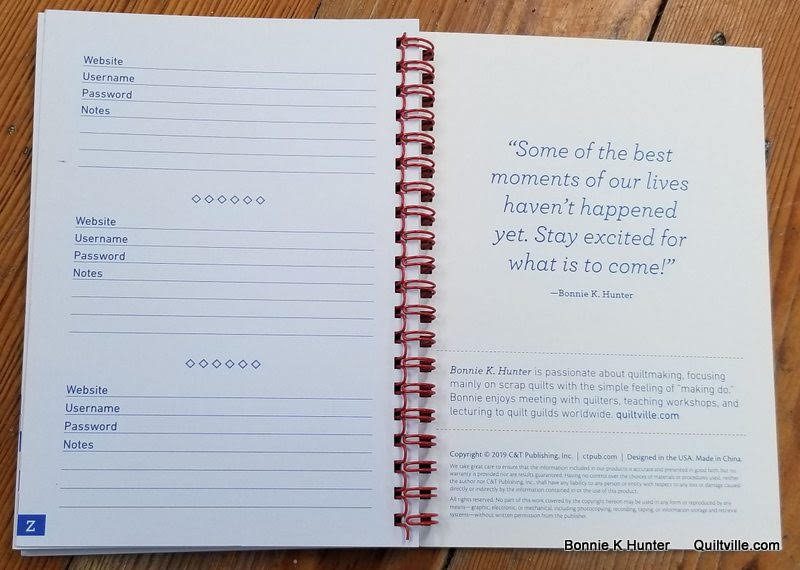 Website
Username
Password
Notes
Website
Username
Password
Notes
Website
Username
Password
Notes
Z
“Some of the best
moments of our lives
haven’t happened
yet. Stay excited for
what is to come!”
—Bonnie K. Hunter
Bonnie K. Hunter is passionate about quiltmaking, focusing
mainly on scrap quilts with the simple feeling of “making do.”
Bonnie enjoys meeting with quilters, teaching workshops, and
lecturing to quilt guilds worldwide. quiltville.com
Copyright © 2019 C&T Publishing, Inc. | ctpub.com | Designed in the USA. Made in China.
We take great care to ensure that the information included in our products is accurate and presented in good faith, but no
warranty is provided nor are results guaranteed. Having no control over the choices of materials or procedures used, neither
the author nor C&T Publishing, Inc., shall have any liability to any person or entity with respect to any loss or damage caused
directly or indirectly by the information contained in or the use of this product.
All rights reserved. No part of this work covered by the copyright hereon may be used in any form or reproduced by any
means—graphic, electronic, or mechanical, including photocopying, recording, taping, or information storage and retrieval
systems—without written permission from the publisher.
Bonnie K Hunter Quiltville.com